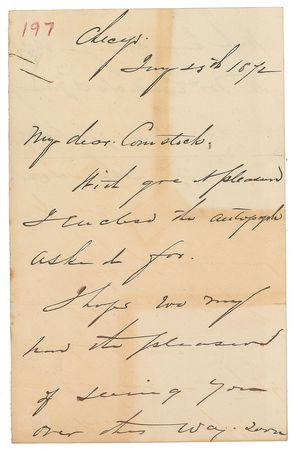 197
Chicago.
Jany 25th 1872
My dear Comstock,
With great pleasure
I enclose the autograph
asked for.
I hope we may
have the pleasure
of seeing you
over this way. Soon